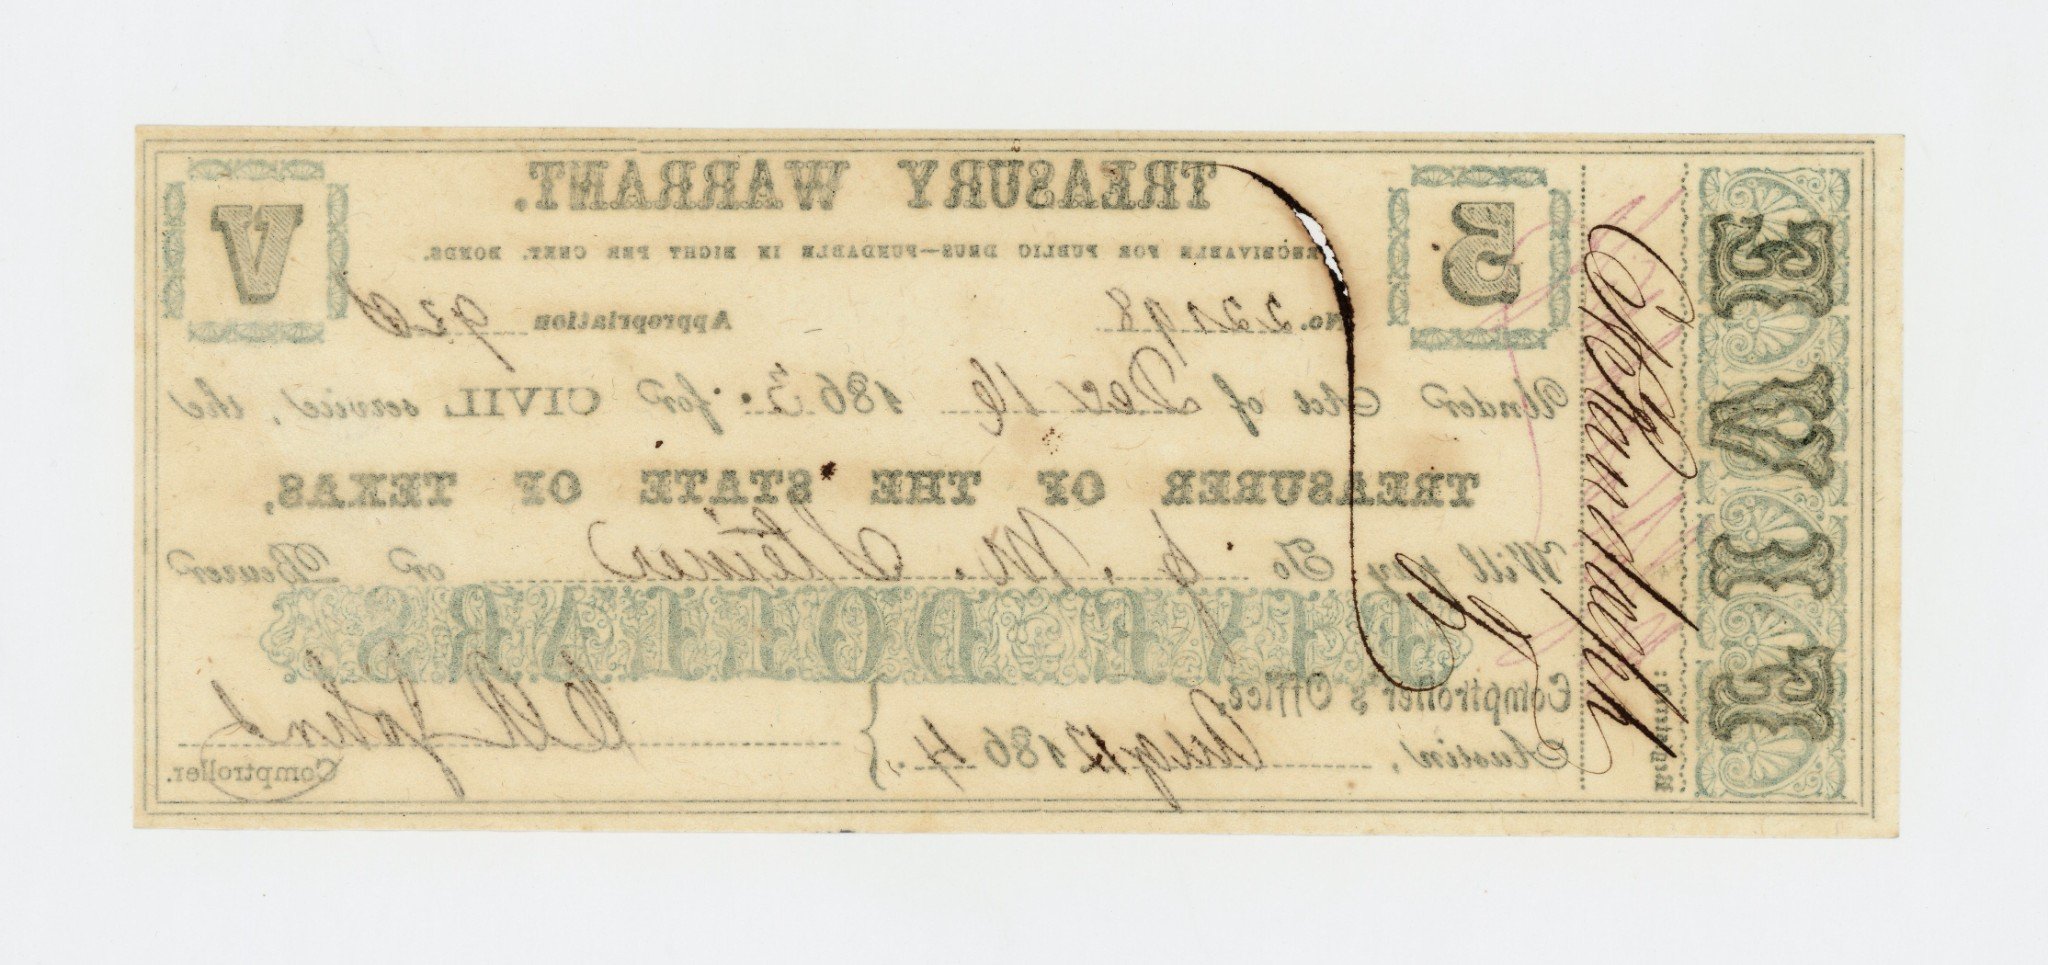 TREASURY WARRANT.
RECEIVABLE FOR PUBLIC DUES—FUNDABLE IN EIGHT PER CENT. BONDS.
5
V
No. 22198 Appropriation 920
Under Act of Dec 16 1863. for CIVIL service, the
TREASURER OF THE STATE OF TEXAS,
Will pay To J. M. Steiner or Bearer
FIVE DOLLARS
Comptroller's Office,
Austin, Aug 12 1864.
Comptroller.
Registered:
FIVE